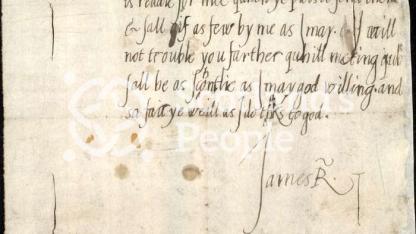 is readie for me quhen ye
& sall gif as few by me as I may. I will
not trouble you farther quhill meting quhilk
sall be as sone as I may god willing. and
so fair ye weill as I do to god.
James R.
People